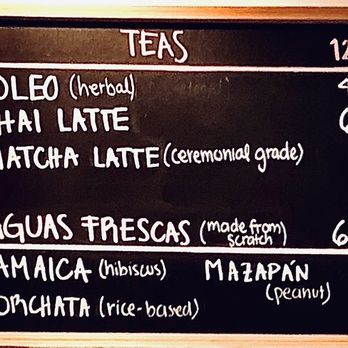 TEAS 12
OLEO (herbal)
HAI LATTE
MATCHA LATTE (ceremonial grade)
AGUAS FRESCAS (made from scratch) 6
JAMAICA (hibiscus) MAZAPÁN (peanut)
HORCHATA (rice-based)